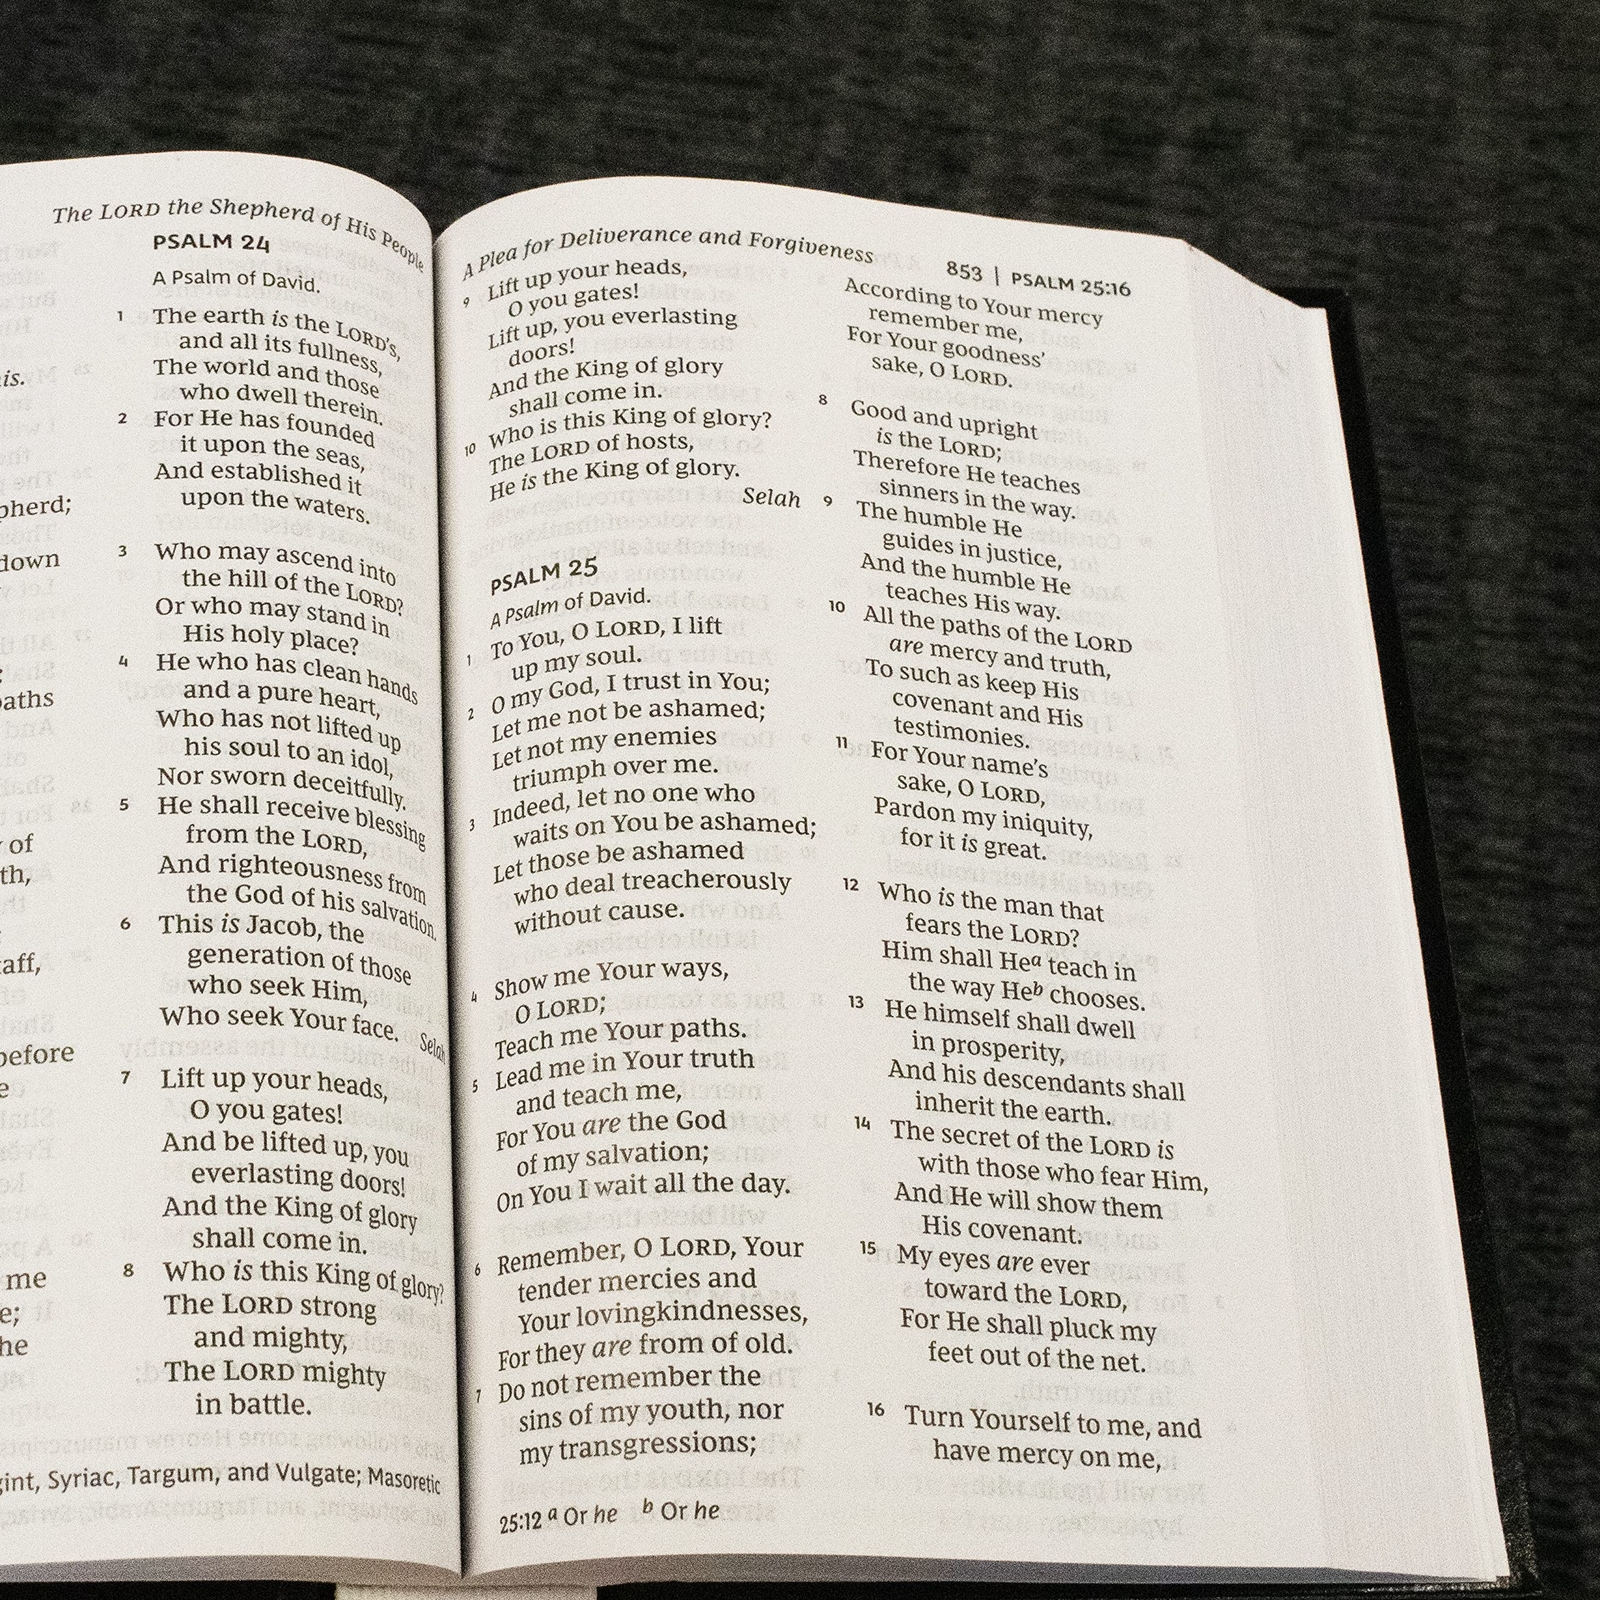 is.
pherd;
down
paths
of
th,
taff,
before
e
me
e;
he
The LORD the Shepherd of His People
PSALM 24
A Psalm of David.
1 The earth is the LORD's,
and all its fullness,
The world and those
who dwell therein.
2 For He has founded
it upon the seas,
And established it
upon the waters.
3 Who may ascend into
the hill of the LORD?
Or who may stand in
His holy place?
4 He who has clean hands
and a pure heart,
Who has not lifted up
his soul to an idol,
Nor sworn deceitfully.
5 He shall receive blessing
from the LORD,
And righteousness from
the God of his salvation.
6 This is Jacob, the
generation of those
who seek Him,
Who seek Your face. Selah
7 Lift up your heads,
O you gates!
And be lifted up, you
everlasting doors!
And the King of glory
shall come in.
8 Who is this King of glory?
The LORD strong
and mighty,
The LORD mighty
in battle.
gint, Syriac, Targum, and Vulgate; Masoretic
A Plea for Deliverance and Forgiveness
853 | PSALM 25:16
9 Lift up your heads,
O you gates!
Lift up, you everlasting
doors!
And the King of glory
shall come in.
10 Who is this King of glory?
The LORD of hosts,
He is the King of glory.
Selah
PSALM 25
A Psalm of David.
1 To You, O LORD, I lift
up my soul.
2 O my God, I trust in You;
Let me not be ashamed;
Let not my enemies
triumph over me.
3 Indeed, let no one who
waits on You be ashamed;
Let those be ashamed
who deal treacherously
without cause.
4 Show me Your ways,
O LORD;
Teach me Your paths.
5 Lead me in Your truth
and teach me,
For You are the God
of my salvation;
On You I wait all the day.
6 Remember, O LORD, Your
tender mercies and
Your lovingkindnesses,
For they are from of old.
7 Do not remember the
sins of my youth, nor
my transgressions;
According to Your mercy
remember me,
For Your goodness'
sake, O LORD.
8 Good and upright
is the LORD;
Therefore He teaches
sinners in the way.
9 The humble He
guides in justice,
And the humble He
teaches His way.
10 All the paths of the LORD
are mercy and truth,
To such as keep His
covenant and His
testimonies.
11 For Your name's
sake, O LORD,
Pardon my iniquity,
for it is great.
12 Who is the man that
fears the LORD?
Him shall He a teach in
the way He b chooses.
13 He himself shall dwell
in prosperity,
And his descendants shall
inherit the earth.
14 The secret of the LORD is
with those who fear Him,
And He will show them
His covenant.
15 My eyes are ever
toward the LORD,
For He shall pluck my
feet out of the net.
16 Turn Yourself to me, and
have mercy on me,
25:12 a Or he b Or he